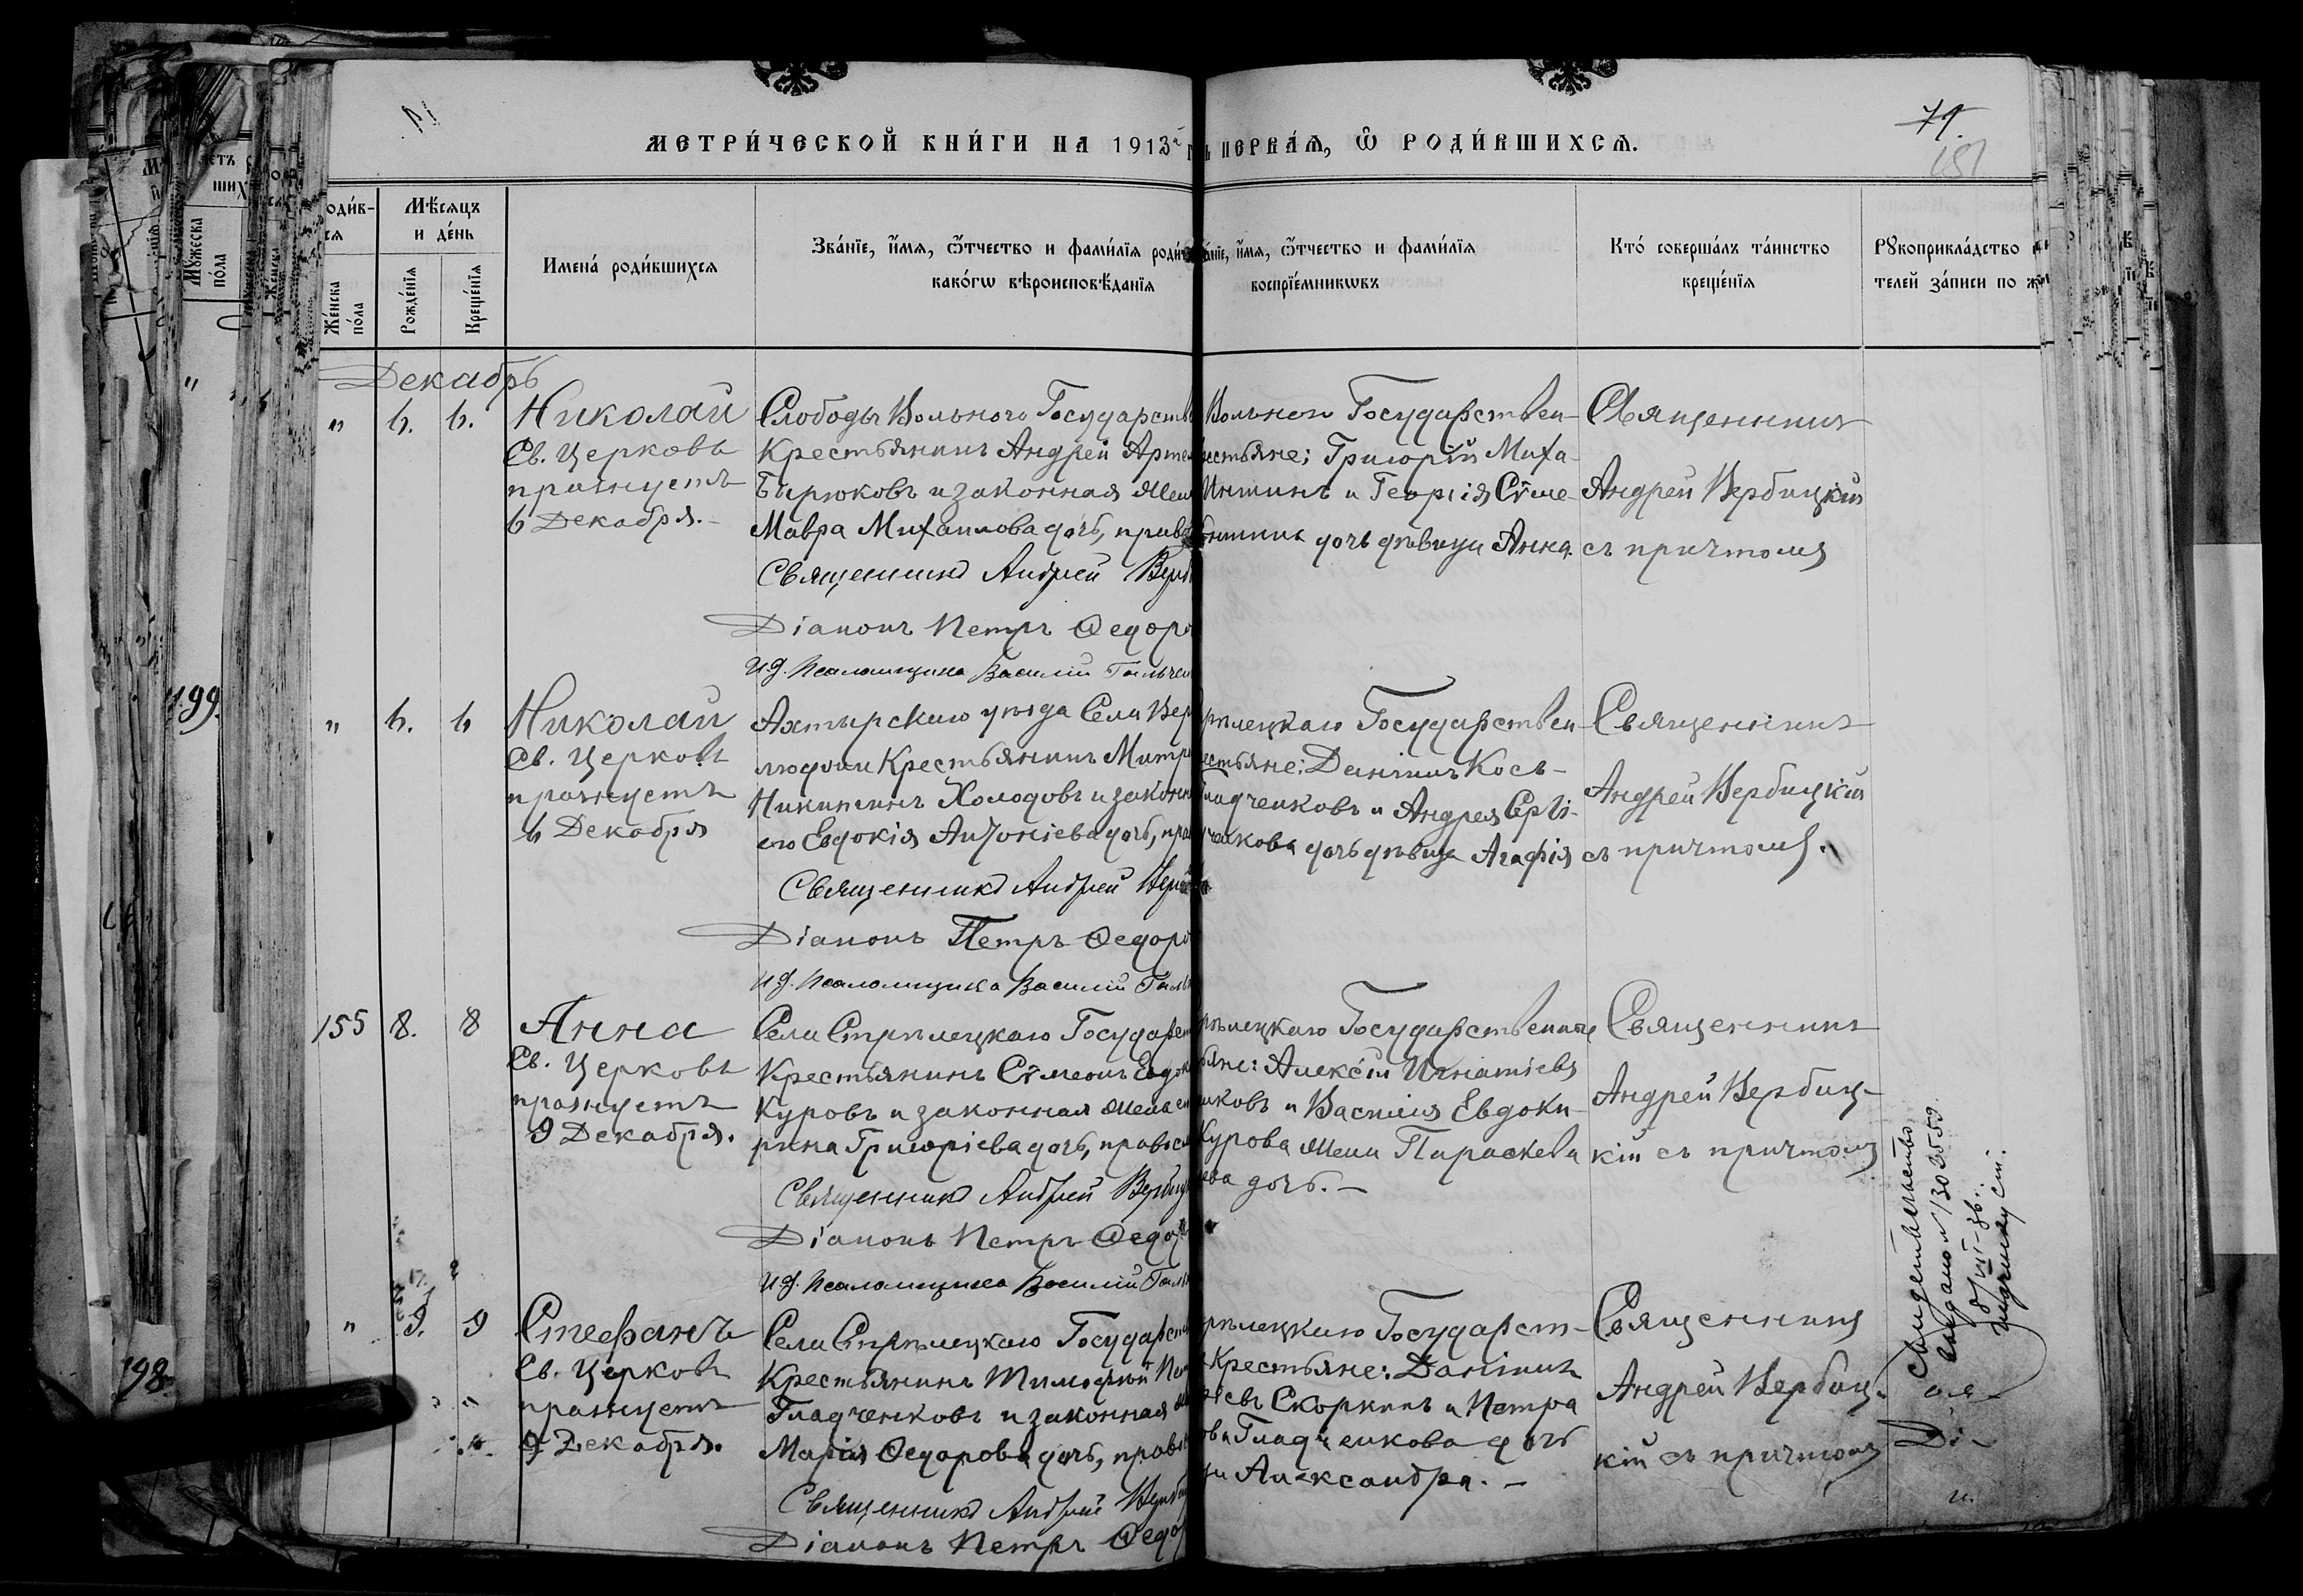 79.
151
МЕТРИ́ЧЕСКОЙ КНИ́ГИ НА 1913й ПЕРВАѦ, Ѡ РОДИ́ВШИХСѦ.
Мѣ́сяцъ
и де́нь
Же́нска
по́ла
Рожде́нїя
Креще́нїя
Имена́ роди́вшихся
Зва́нїе, и́мя, ѻ҆́тчество и фами́лїя
како́гѡ вѣроисповѣ́данїя
и́мя, ѻ҆́тчество и фами́лїя
воспрїе́мникѡвъ
Кто́ соверша́лъ та́инство
креще́нїя
Рꙋкоприкла́дство
телей за́писи по
Декабрь
" 6. 6. Николай
Св. Церковь
празнуетъ
6 Декабря.-
Слободы Вольного Государств
Крестьянинъ Андрей Артем
Бирюковъ и законная жен
Мавра Михаилова дочь, право
Священникъ Андрей Верб
Діаконъ Петръ Ѳедоро
И.д. Псаломщика Василій
Вольнои Государствен-
естьяне: Григорій Миха-
и Георгія Сѵме-
дочь дѣвица Анна.
Священникъ
Андрей Вербицкій
съ причтомъ
199.
" 6. 6 Николай
Св. Церковь
празнуетъ
6 Декабря
Ахтырскаго уѣзда Села
людмии Крестьянинъ Митр
Никитинъ Холодовъ и законн
его Евдокія Антоніева дочь, пра
Священникъ Андрей Верб
Діаконъ Петръ Ѳедоро
И.д. Псаломщика Василій
рѣлецкаго Государствен-
естьяне: Даніилъ Кось-
ладченковъ и Андрея Сергі-
ченкова дочь дѣвица Агафія
Священникъ
Андрей Вербицкій
съ причтомъ.
155 8. 8 Анна
Св. Церковь
празнуетъ
9 Декабря.
Села Стрѣлецкаго Государст
Крестьянинъ Сѵмеонъ Евдок
Куровъ и законная жена ег
рина Григоріева дочь, правосл
Священникъ Андрей Вербиц
Діаконъ Петръ Ѳедо
И.д. Псаломщика Василій
рѣлецкаго Государственные
ьяне: Алексѣй Игнатіевъ
иковъ и Василія Евдоки-
Курова жена Параскева
ева дочь. -
Священникъ
Андрей Вербиц-
кій съ причтомъ
198.
" 9. 9 Стефанъ
Св. Церковь
празнуетъ
9 Декабря.
Села Стрѣлецкаго Государст
Крестьянинъ Тимофей
Гладченковъ и законная
Марія Ѳедорова дочь, право
Священникъ Андрей Верб
Діаконъ Петръ Ѳедо
рѣлецкаго Государст-
Крестьяне: Даніилъ
евъ Скоркинъ и Петра
ова Гладченкова дочь
ца Александра. -
Священникъ
Андрей Вербиц-
кій съ причтомъ
Свидетельство
выдано